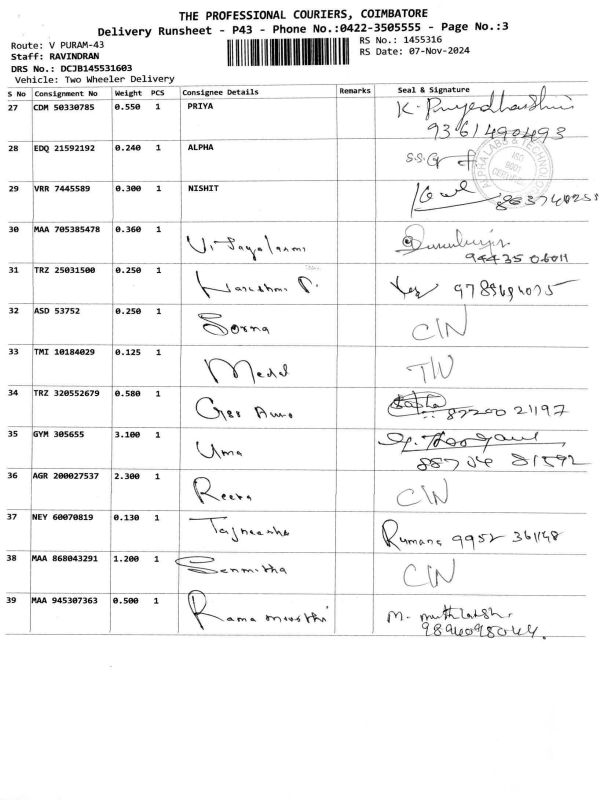 THE PROFESSIONAL COURIERS, COIMBATORE
Delivery Runsheet - P43 - Phone No.:0422-3505555 - Page No.:3
Route: V PURAM-43
RS No.: 1455316
Staff: RAVINDRAN
RS Date: 07-Nov-2024
DRS No.: DCJB145531603
Vehicle: Two Wheeler Delivery
S No Consignment No Weight PCS Consignee Details Remarks Seal & Signature
27 CDM 50330785 0.550 1 PRIYA
9361490493
28 EDQ 21592192 0.240 1 ALPHA
ALPHA LABS & TECHNOL
ISO
9001
CERTIFIED
29 VRR 7445589 0.300 1 NISHIT
30 MAA 705385478 0.360 1
94435 06011
31 TRZ 25031500 0.250 1
32 ASD 53752 0.250 1 Sorna C/N
33 TMI 10184029 0.125 1 Medal
34 TRZ 320552679 0.580 1
87200 21197
35 GYM 305655 3.100 1 Uma
88704 81592
36 AGR 200027537 2.300 1 Reena C/N
37 NEY 60070819 0.130 1 Rumana 9952 361148
38 MAA 868043291 1.200 1 Senmitha C/N
39 MAA 945307363 0.500 1 Rama moorthi
9894098044.